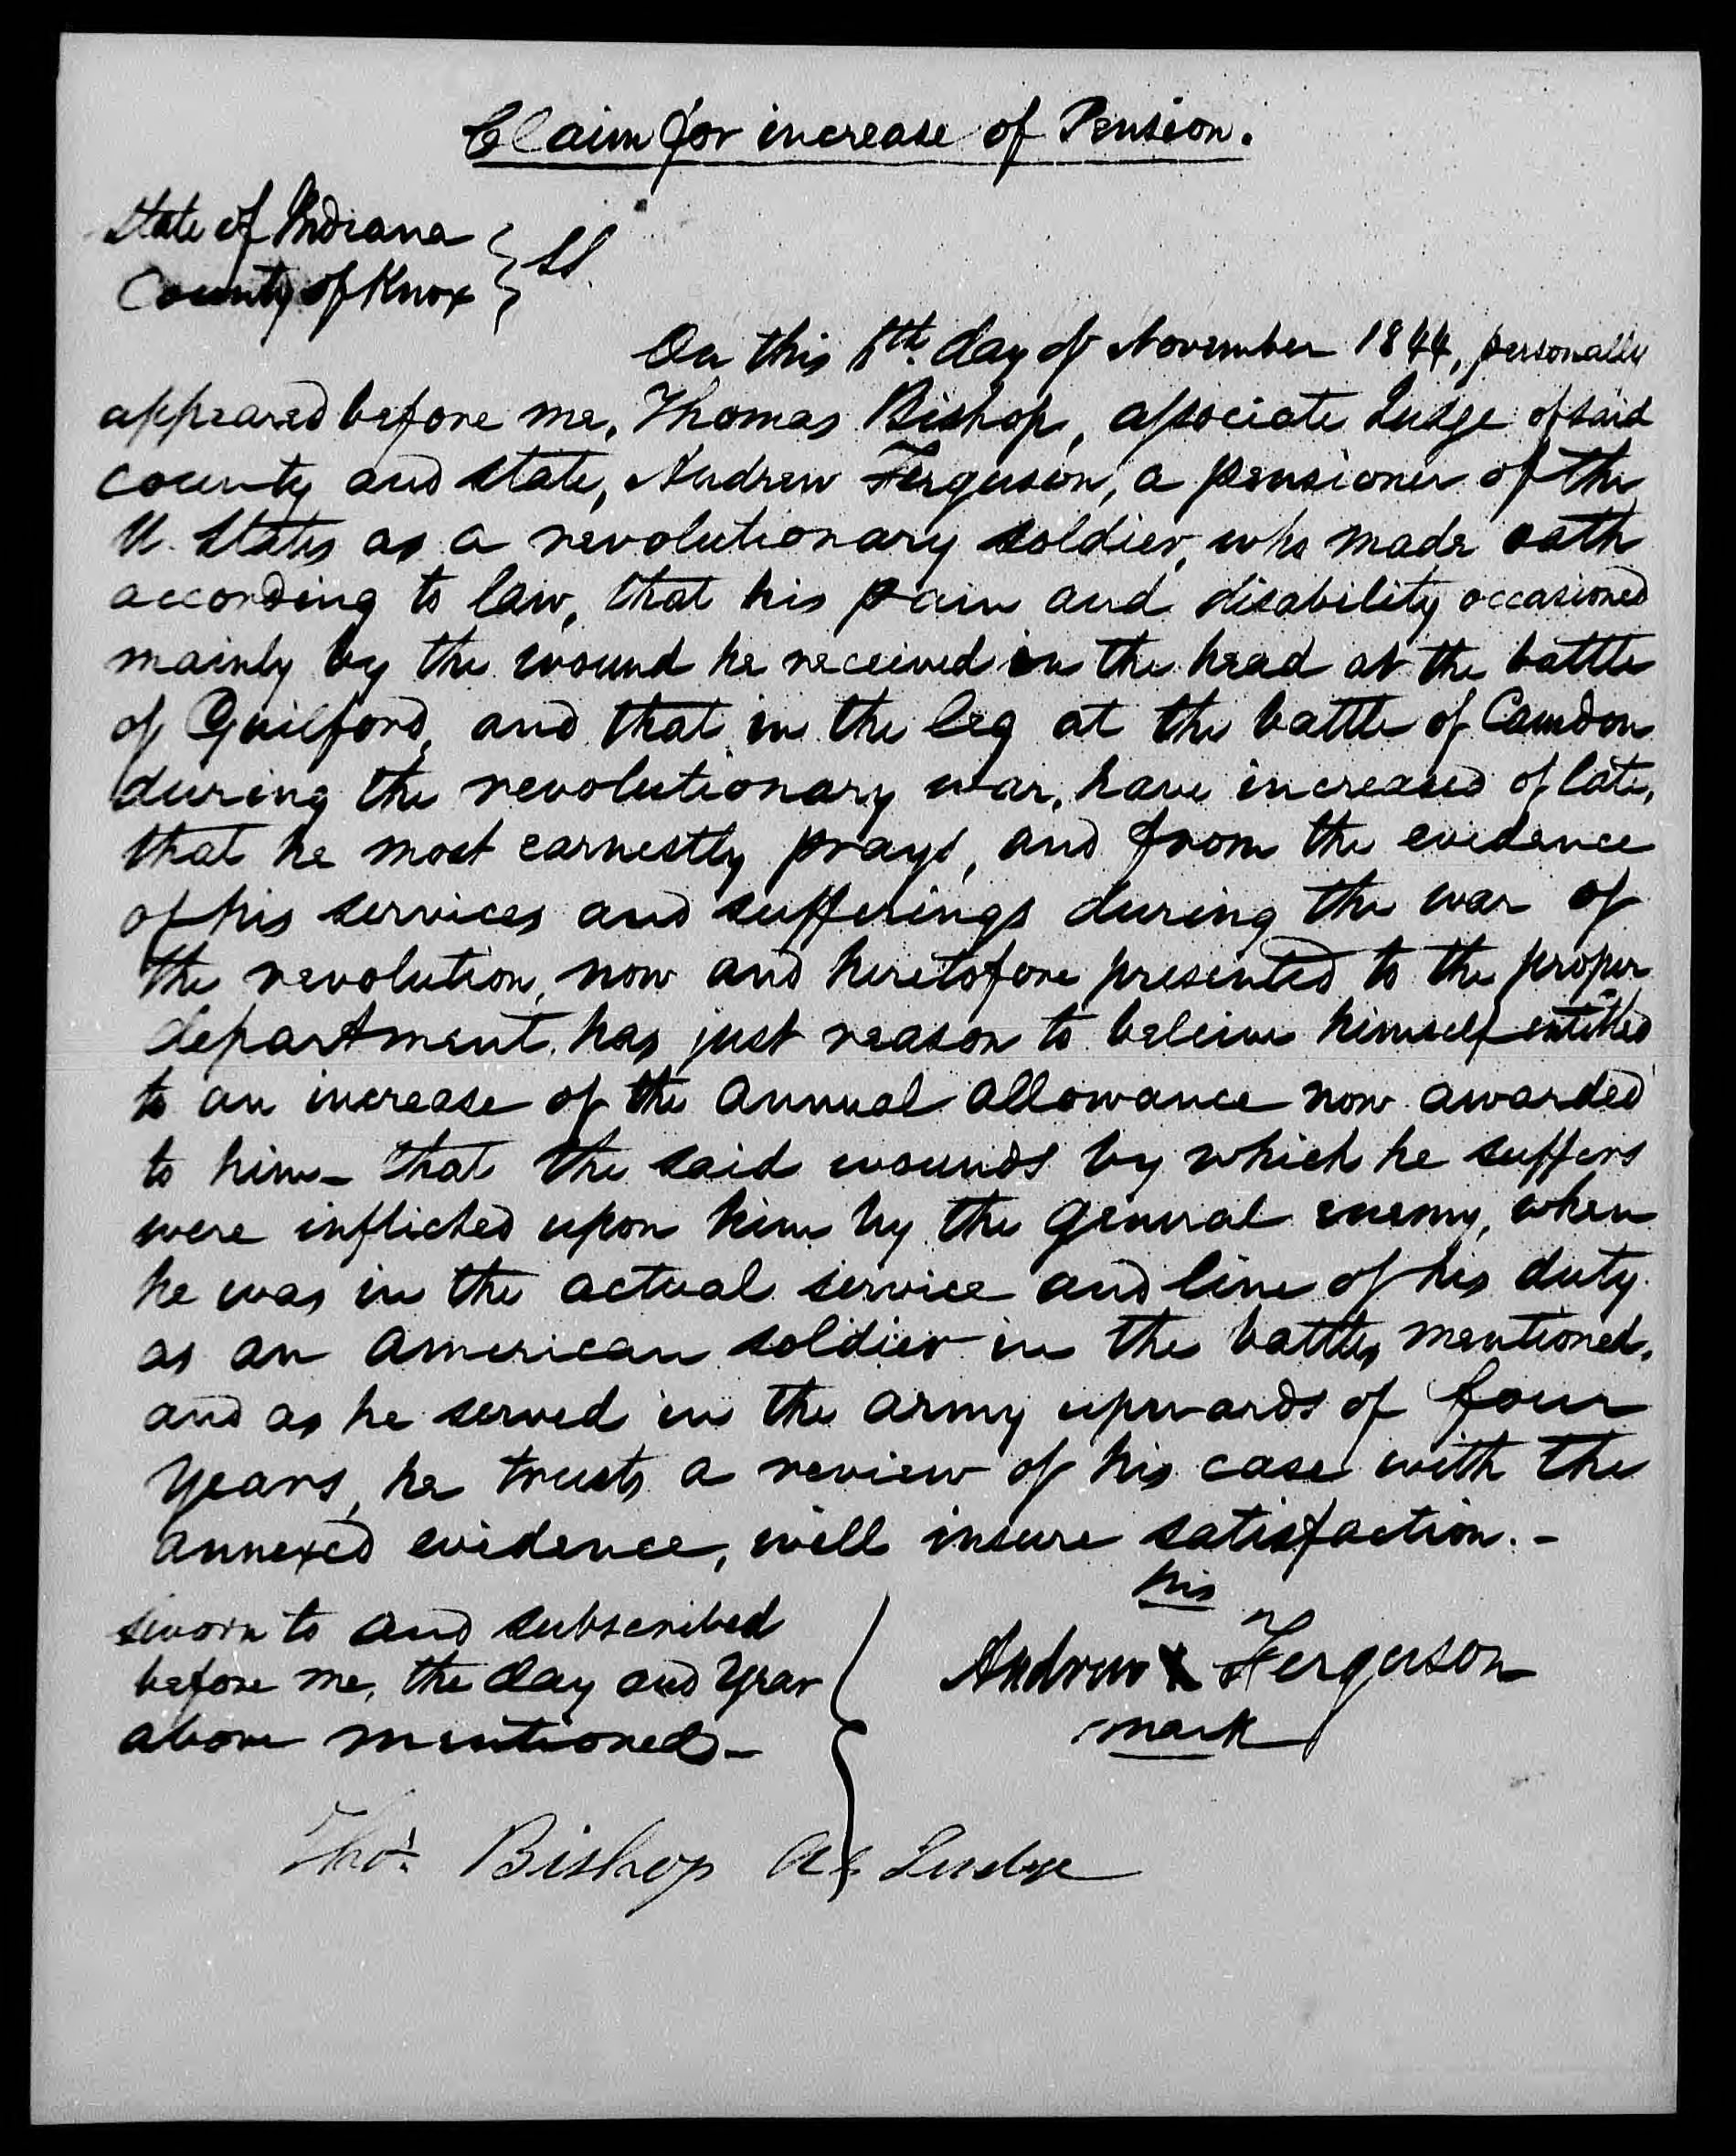 Claim for increase of Pension.
State of Indiana
County of Knox } SS.
On this 8th day of November 1844, personally
appeared before me, Thomas Bishop, associate Judge of said
county and state, Andrew Ferguson, a pensioner of the
U. States as a revolutionary soldier, who made oath
according to law, that his pain and disability occasioned
mainly by the wound he received in the head at the battle
of Guilford, and that in the leg at the battle of Camdon
during the revolutionary war, have increased of late,
that he most earnestly prays, and from the evidence
of his services and sufferings during the war of
the revolution, now and heretofore presented to the proper
department, has just reason to beleive himself entitled
to an increase of the annual allowance now awarded
to him - that the said wounds by which he suffers
were inflicted upon him by the general enemy, when
he was in the actual service and line of his duty
as an american soldier in the battles mentioned,
and as he served in the army upwards of four
years, he trusts a review of his case with the
annexed evidence, will insure satisfaction. -
his
sworn to and subscribed
before me, the day and year
above mentioned -
Andrew X Ferguson
mark
Thos. Bishop As Judge